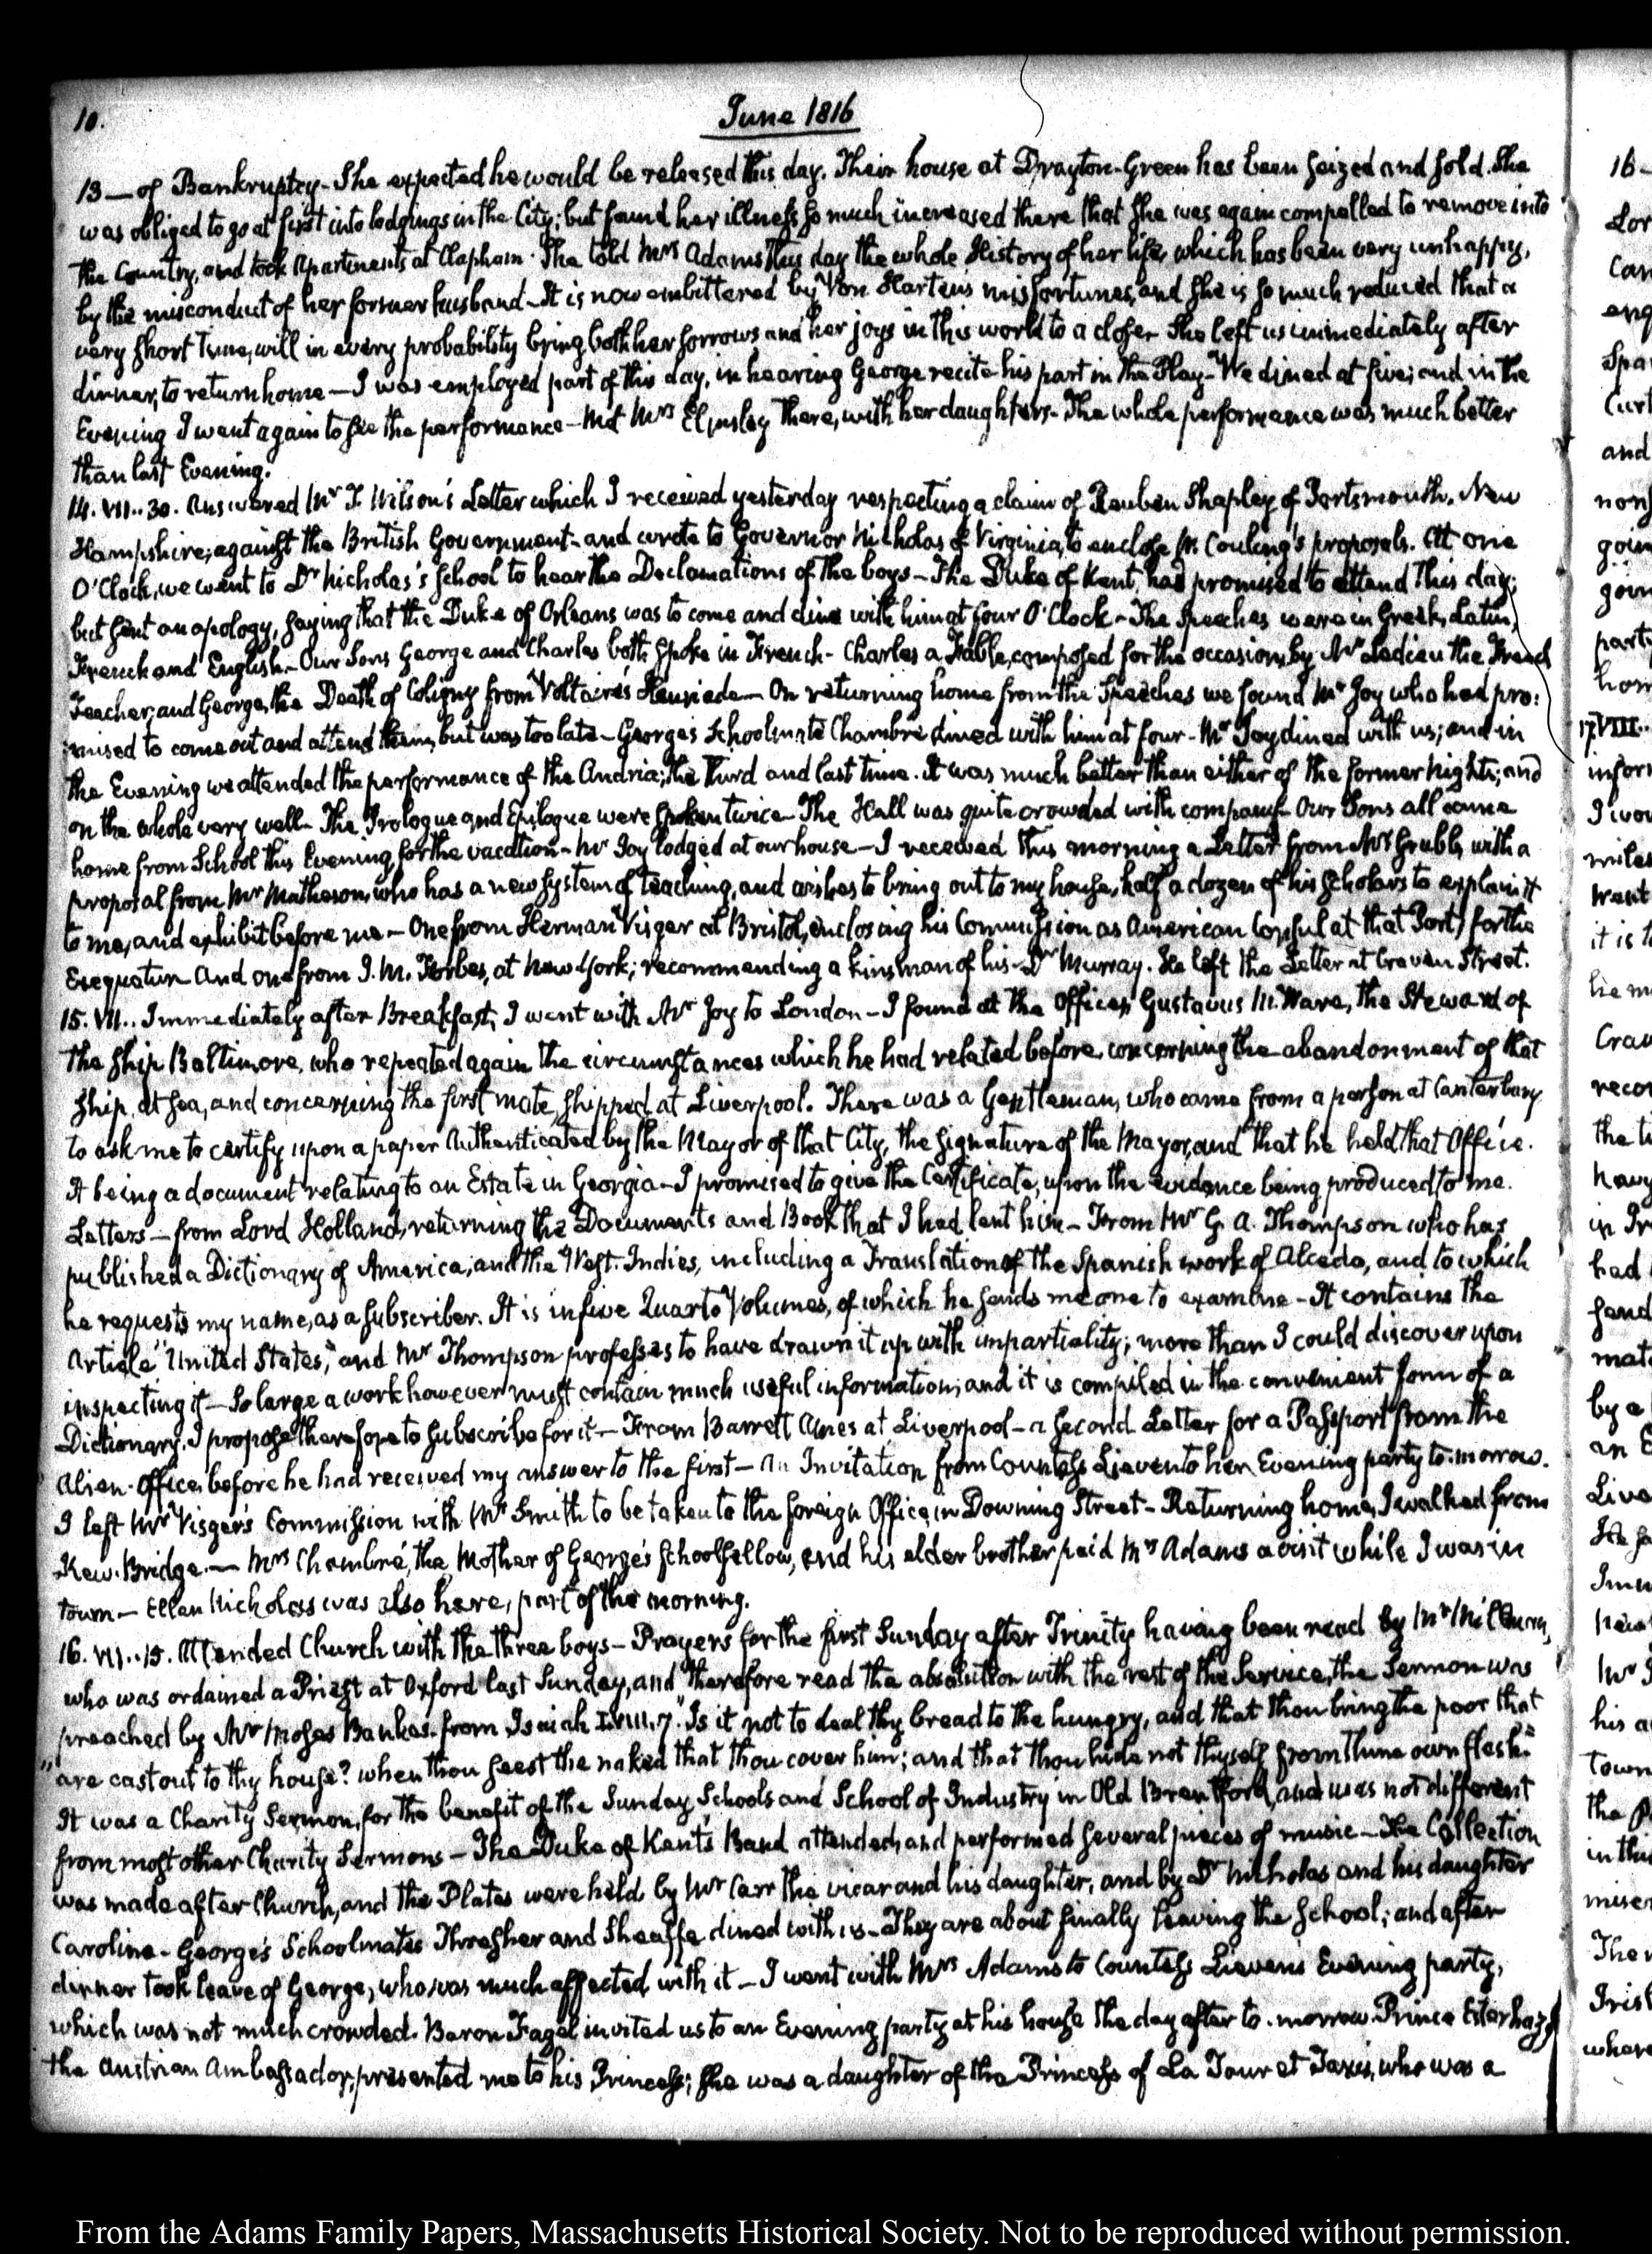 10.
June 1816
13 — of Bankruptcy - She expected he would be released this day. Their house at Drayton-Green has been seized and sold. She
was obliged to go at first into lodgings in the City; but found her illness so much increased there that she was again compelled to remove into
the Country, and took Apartments at Clapham. She told Mrs Adams this day the whole History of her life, which has been very unhappy,
by the misconduct of her former husband - It is now embittered by Von Harten's misfortunes, and she is so much reduced that a
very short time, will in every probability bring both her sorrows and her joys in this world to a close. She left us immediately after
dinner, to return home — I was employed part of this day, in hearing George recite his part in the Play - We dined at five; and in the
Evening I went again to see the performance - Met Mrs Elmsley there, with her daughters - The whole performance was much better
than last Evening.
14. VII..30. Answered Mr J. Wilson's Letter which I received yesterday respecting a claim of Reuben Shapley of Portsmouth, New
Hampshire; against the British Government - and wrote to Governor Nicholas of Virginia, to enclose Mr Couling's proposals. At one
O'Clock, we went to Dr Nicholas's School to hear the Declamations of the boys - The Duke of Kent, had promised to attend this day;
but sent an apology, saying that the Duke of Orleans was to come and dine with him at four O'Clock - The Speeches were in Greek, Latin,
French and English - Our Sons George and Charles both spoke in French - Charles a Fable, composed for the occasion, by Mr Ledieu the French
Teacher; and George, the Death of Coligny from Voltaire's Henriade — On returning home from the Speeches we found Mr Joy who had pro:
mised to come out and attend them, but was too late - George's Schoolmate Chambré dined with him at four - Mr Joy dined with us; and in
the Evening we attended the performance of the Andria; the third and last time. It was much better than either of the former nights; and
on the whole very well - The Prologue and Epilogue were spoken twice - The Hall was quite crowded with company - Our Sons all came
home from School this Evening for the vacation - Mr Joy lodged at our house — I received this morning a Letter from Mr Grubb, with a
proposal from Mr Matheson, who has a new system of teaching, and wishes to bring out to my house, half a dozen of his scholars to explain it
to me, and exhibit before me - One from Herman Visger at Bristol, enclosing his Commission as American Consul at that Port, for the
Exequatur - And one from J. M. Forbes, at New York; recommending a kinsman of his - Dr Murray. He left the Letter at Craven Street.
15. VII.. Immediately after Breakfast, I went with Mr Joy to London - I found at the Office, Gustavus M. Ware, the Steward of
the Ship Baltimore, who repeated again the circumstances which he had related before, concerning the abandonment of that
Ship, at Sea, and concerning the first mate, shipped at Liverpool. There was a Gentleman, who came from a person at Canterbury
to ask me to certify upon a paper Authenticated by the Mayor of that City, the signature of the Mayor, and that he held that Office.
It being a document relating to an Estate in Georgia - I promised to give the Certificate, upon the evidence being produced to me.
Letters — from Lord Holland, returning the Documents and Book that I had lent him - From Mr G. A. Thompson who has
published a Dictionary of America, and the West-Indies, including a Translation of the Spanish work of Alcedo, and to which
he requests my name, as a subscriber. It is in five Quarto Volumes, of which he sends me one to examine - It contains the
Article "United States," and Mr Thompson professes to have drawn it up with impartiality; more than I could discover upon
inspecting it — So large a work however must contain much useful information; and it is compiled in the convenient form of a
Dictionary. I propose therefore to subscribe for it — From Barrett Ames at Liverpool - a second Letter for a Passport from the
Alien-Office, before he had received my answer to the first — An Invitation from Countess Lieven to her Evening party to-morrow.
I left Mr Visger's Commission with Mr Smith to be taken to the foreign Office, in Downing Street - Returning home, I walked from
Kew-Bridge. — Mrs Chambré, the Mother of George's Schoolfellow, and his elder brother paid Mrs Adams a visit while I was in
town — Ellen Nicholas was also here, part of the morning.
16. VII..15. Attended Church with the three boys - Prayers for the first Sunday after Trinity having been read by Mr
who was ordained a Priest at Oxford last Sunday, and therefore read the absolution with the rest of the Service, the Sermon was
preached by Mr Moses Bankes. from Isaiah LVIII.7. "Is it not to deal thy bread to the hungry, and that thou bring the poor that
"are cast out to thy house? when thou seest the naked that thou cover him; and that thou hide not thyself from thine own flesh."
It was a Charity Sermon, for the benefit of the Sunday Schools and School of Industry in Old Brentford, and was not different
from most other Charity Sermons - The Duke of Kent's Band attended, and performed several pieces of music - The Collection
was made after Church, and the Plates were held by Mr Carr the vicar and his daughter, and by Dr Nicholas and his daughter
Caroline - George's Schoolmates Thresher and Sheaffe dined with us - They are about finally leaving the School; and after
dinner took leave of George, who was much affected with it — I went with Mrs Adams to Countess Lieven's Evening party,
which was not much crowded. Baron Fagel invited us to an Evening party at his house the day after to-morrow. Prince Esterhazy,
the Austrian Ambassador, presented me to his Princess; she was a daughter of the Princess of La Tour et Taxis, who was a
From the Adams Family Papers, Massachusetts Historical Society. Not to be reproduced without permission.